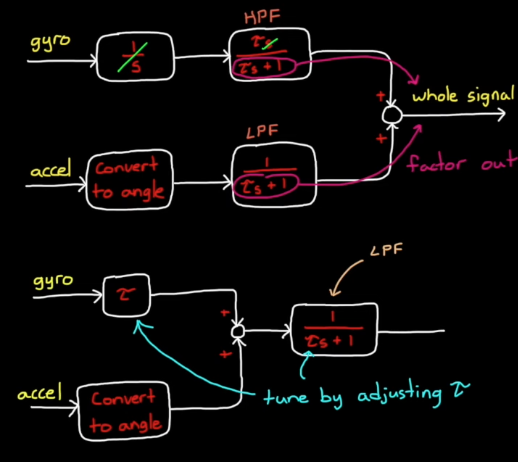 HPF
gyro
1
s
τs
τs + 1
+
whole signal
+
LPF
accel
Convert
to angle
1
τs + 1
factor out
LPF
gyro
τ
+
1
τs + 1
+
accel
Convert
to angle
tune by adjusting τ